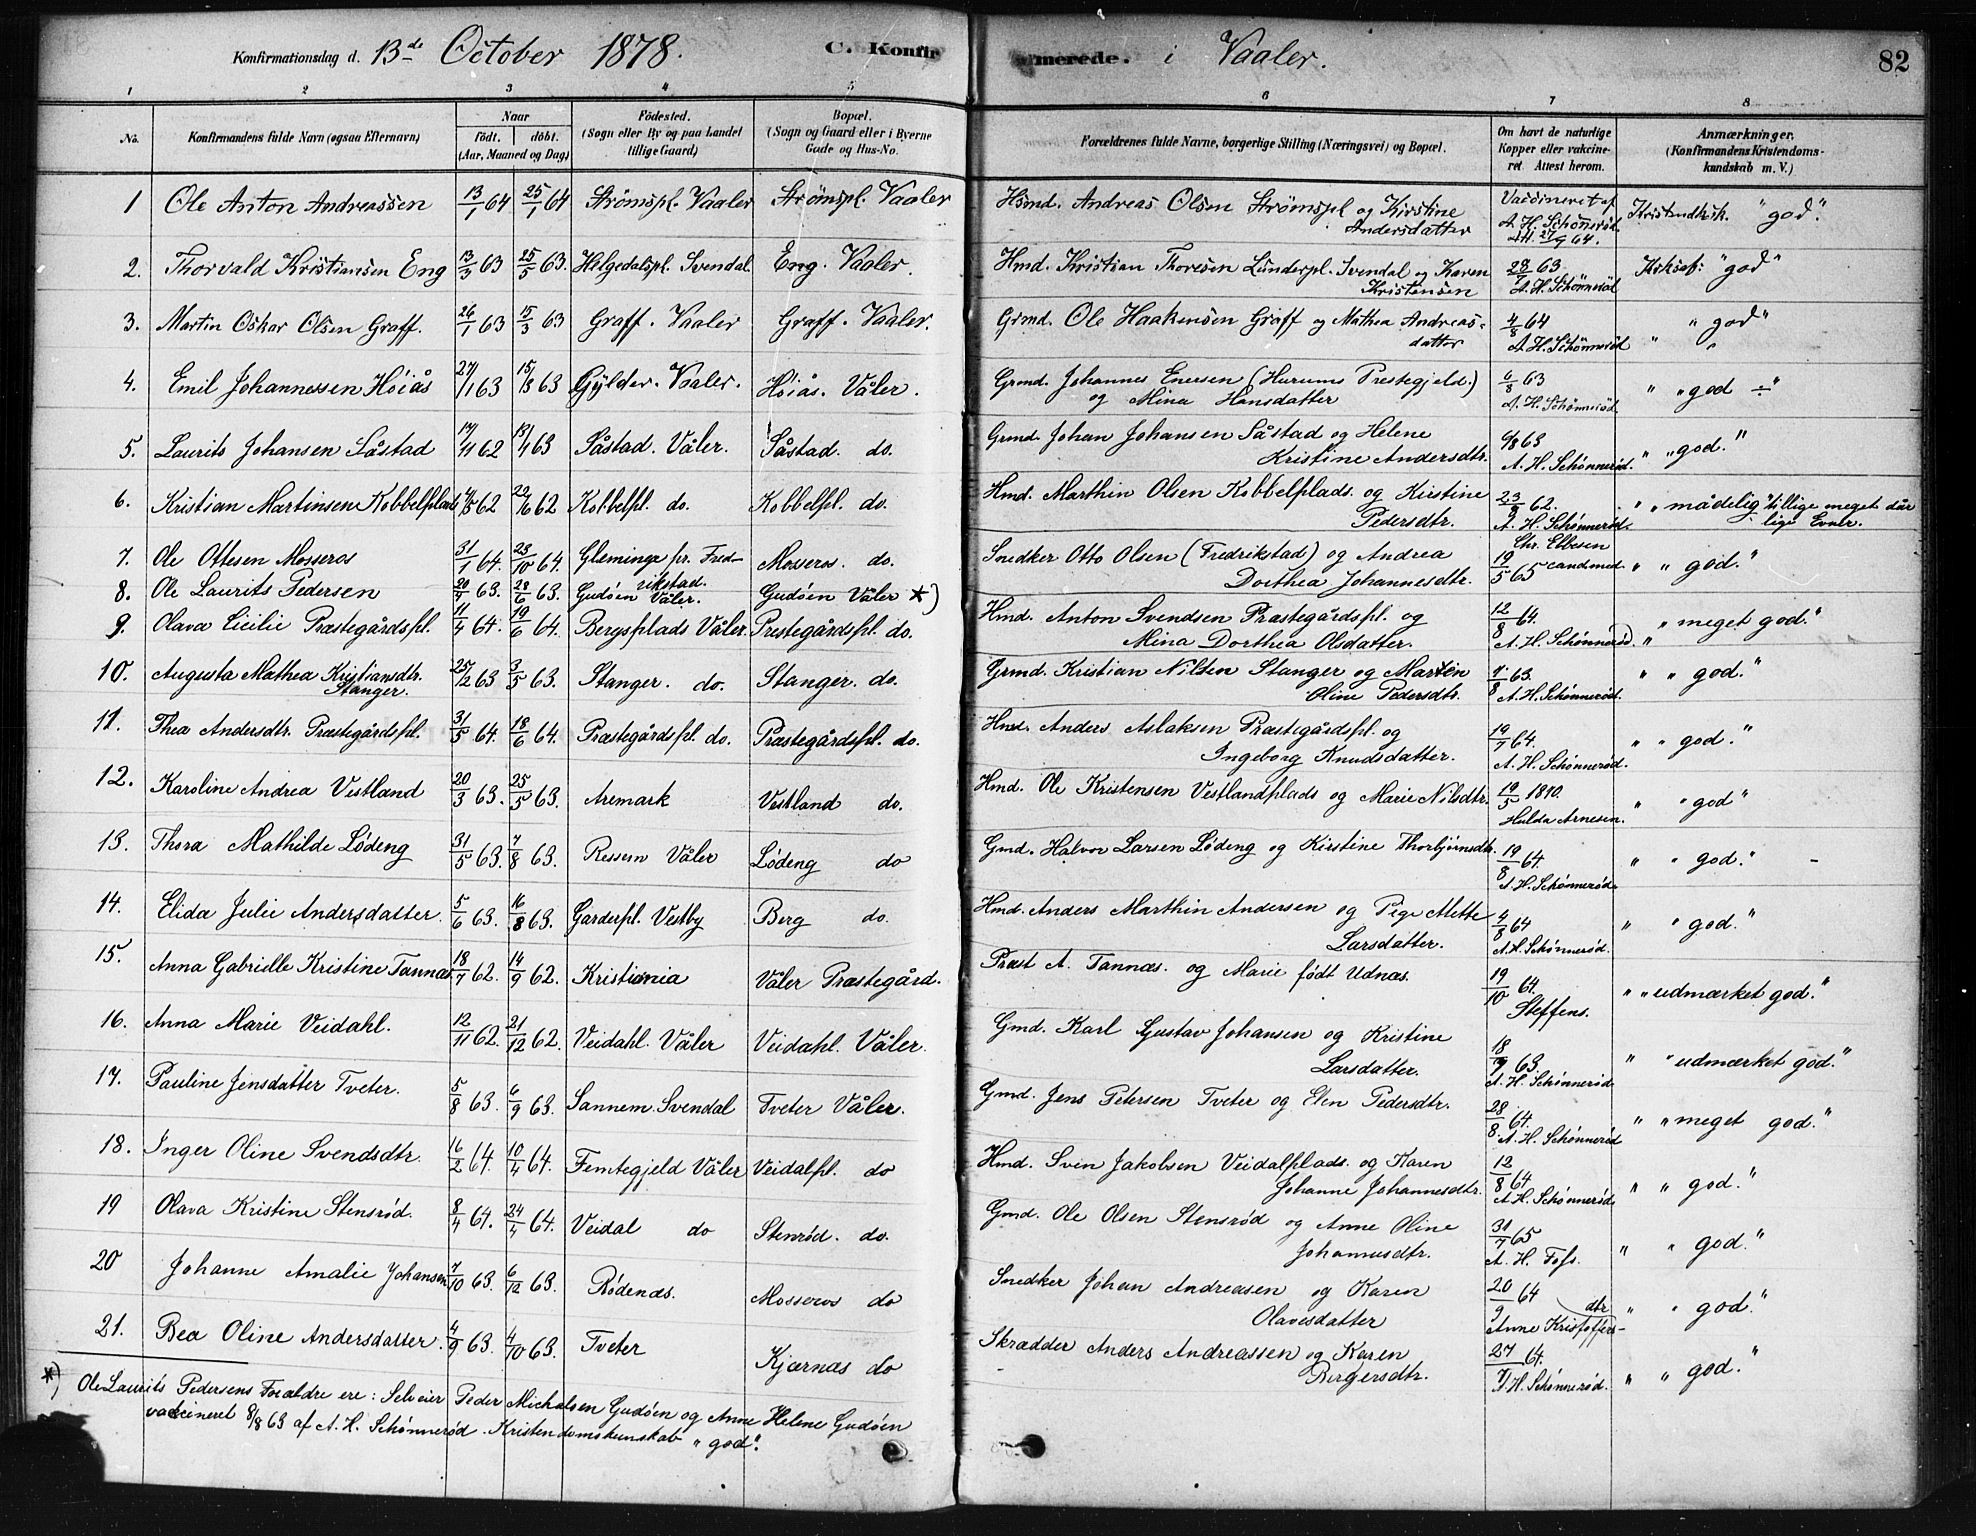 Konfirmationsdag d. 13de October 1878. C. Konfirmerede. i Vaaler. 82
1 2 3 4 5 6 7 8
No. Konfirmandens fulde Navn (ogsaa Efternavn) Naar født. døbt. (Aar, Maaned og Dag) Fødested. (Sogn eller By og paa Landet tillige Gaard) Bopæl. (Sogn og Gaard eller i Byerne Gade og Hus-No. Forældrenes fulde Navne, borgerlige Stilling (Næringsvei) og Bopæl. Om havt de naturlige Kopper eller vakcineret. Attest herom. Anmærkninger. (Konfirmandens Kristendomskundskab m. V.)
1 Ole Anton Andreassen 13/1 64 25/1 64 Strømspl. Vaaler Strømspl. Vaaler Hsmd. Andreas Olsen Strømspl og Kirstine Andersdatter Vaccineret af A. H. Schønnerød 27/9 64. Kristendksk. "god".
2. Thorvald Kristiansen Eng 13/3 63 25/5 63. Helgedalspl. Svendal Eng. Vaaler. Hmd. Kristian Thoresen Lunderpl. Svendal og Karen Kristensen 28/7 63 A. H. Schønnerød "god"
3. Martin Oskar Olsen Graff. 26/1 63 15/3 63 Graff. Vaaler Graff. Vaaler. Grmd. Ole Haakensen Graff og Mathea Andreasdatter 4/8 64 A. H. Schønnerød " "god"
4. Emil Johannessen Høiås 27/1 63 15/3 63 Gylder. Vaaler. Høiås. Våler. Grmd. Johannes Enersen (Hurums Prestegjeld.) og Mina Hansdatter 6/8 63 A. H. Schønnerød " "god ÷"
5. Laurits Johansen Såstad 14/11 62 13/1 63 Såstad. Våler. Såstad. do. Grmd. Johan Johansen Såstad og Helene Kristine Andersdtr. 6/8 63 A. H. Schønnerød. " "god."
6. Kristian Martinsen Kobbelplads 4/5 62 22/6 62 Kobbelpl. do. Kobbelpl. do. Hmd. Marthin Olsen Kobbelplads. og Kirstine Pedersdtr. 23/9 62. A. H. Schønnerød. " "mådelig" tillige meget dårlige Evner.
7. Ole Ottesen Mosseros 31/1 64. 23/10 64. Gleminge pr. Fredrikstad. Mosseros. do. Snedker Otto Olsen (Fredrikstad) og Andrea Dorthea Johannesdtr. Chr. Ebbesen 19/5 65 cand med. " "god."
8. Ole Laurits Pedersen 20/4 63. 28/6 63. Gudøen Våler. Gudøen Våler *)
9. Olava Cicilie Præstegårdspl. 11/4 64. 19/6 64. Bergsplads Våler. Prestegårdspl. do. Hmd. Anton Svendsen Præstegårdspl. og Mina Dorthea Olsdatter. 12/8 64. A. H. Schønnerød. " "meget god."
10. Augusta Mathea Kristiansdtr. Stanger. 25/2 63 3/5 63. Stanger. do. Stanger. do. Grmd. Kristian Nilsen Stanger og Marten Oline Pedersdtr. 7/8 63. A. H. Schønnerød. " "god."
11. Thea Andersdtr. Præstegårdspl. 31/5 64. 18/6 64. Præstegårdspl. do. Præstegårdspl. do. Hmd. Anders Aslaksen Præstegårdspl. og Ingeborg Knudsdatter. 19/7 64. A. H. Schønnerød. " "god."
12. Karoline Andrea Vestland 20/3 63. 25/5 63. Aremark Vestland do. Hmd. Ole Kristensen Vestlandplads og Marie Nilsdtr. 19/5 1810. Hulda Arnesen. " "god"
13. Thora Mathilde Lødeng 31/5 63. 7/8 63. Ressem Våler Lødeng do Gmd. Halvor Larsen Lødeng og Kirstine Thorbjørnsdtr. 19/8 64. A. H. Schønnerød. " "god."
14. Elida Julie Andersdatter. 5/6 63. 16/8 63. Garderpl. Vestby Berg do. Hmd. Anders Marthin Andersen og Pege Mette Larsdatter. 4/8 64 A. H. Schønnerød. " "god."
15. Anna Gabrielle Kristine Tannæs. 18/7 62. 14/9 62. Kristiania Våler Præstegård. Præst A. Tannæs. og Marie født Udnæs. 19/10 64. Steffens. " "udmærket god."
16. Anna Marie Veidahl. 12/11 62. 21/12 62. Veidahl. Våler Veidahl. Våler. Gmd. Karl Gustav Johansen og Kristine Larsdatter. 18/9 63. A. H. Schønnerød. " "udmærket god."
17. Pauline Jensdatter Tveter. 5/8 63. 6/9 63. Sannem. Svendal Tveter Våler. Gmd. Jens Petersen Tveter og Elen Pedersdtr. 28/8 64. A. H. Schønnerød " "meget god."
18. Inger Oline Svendsdtr. 16/2 64. 10/4 64. Femtegjeld Våler Veidalpl. do Hmd. Sven Jakobsen Veidalplads. og Karen Johanne Johannesdtr. 12/8 64 A. H. Schønnerød " "god."
19 Olava Kristine Stensrød. 8/4 64. 24/4 64. Veidal do Stenrød. do. Gmd. Ole Olsen Stensrød og Anne Oline Johannesdtr. 31/7 65 A. H. Foss. " "god."
20 Johanne Amalie Johansen 7/10 63. 6/12 63. Rødenæs. Mosseros do Snedker Johan Andreasen og Karen Olavesdatter 20/9 64 Anne Kristoffersdtr " "god."
21. Bea Oline Andersdatter. 4/9 63. 4/10 63. Tveter Kjærnæs do Skrædder Anders Andreassen og Karen Birgersdtr. 27/9 64. A. H. Schønnerød. " "god."
*) Ole Laurits Pedersens Forældre ere: Selveier Peder Michalsen Gudøen og Anne Helene Gudøen
vaccineret 8/8 63 af A. H. Schønnerød. Kristendomskunskab "god".